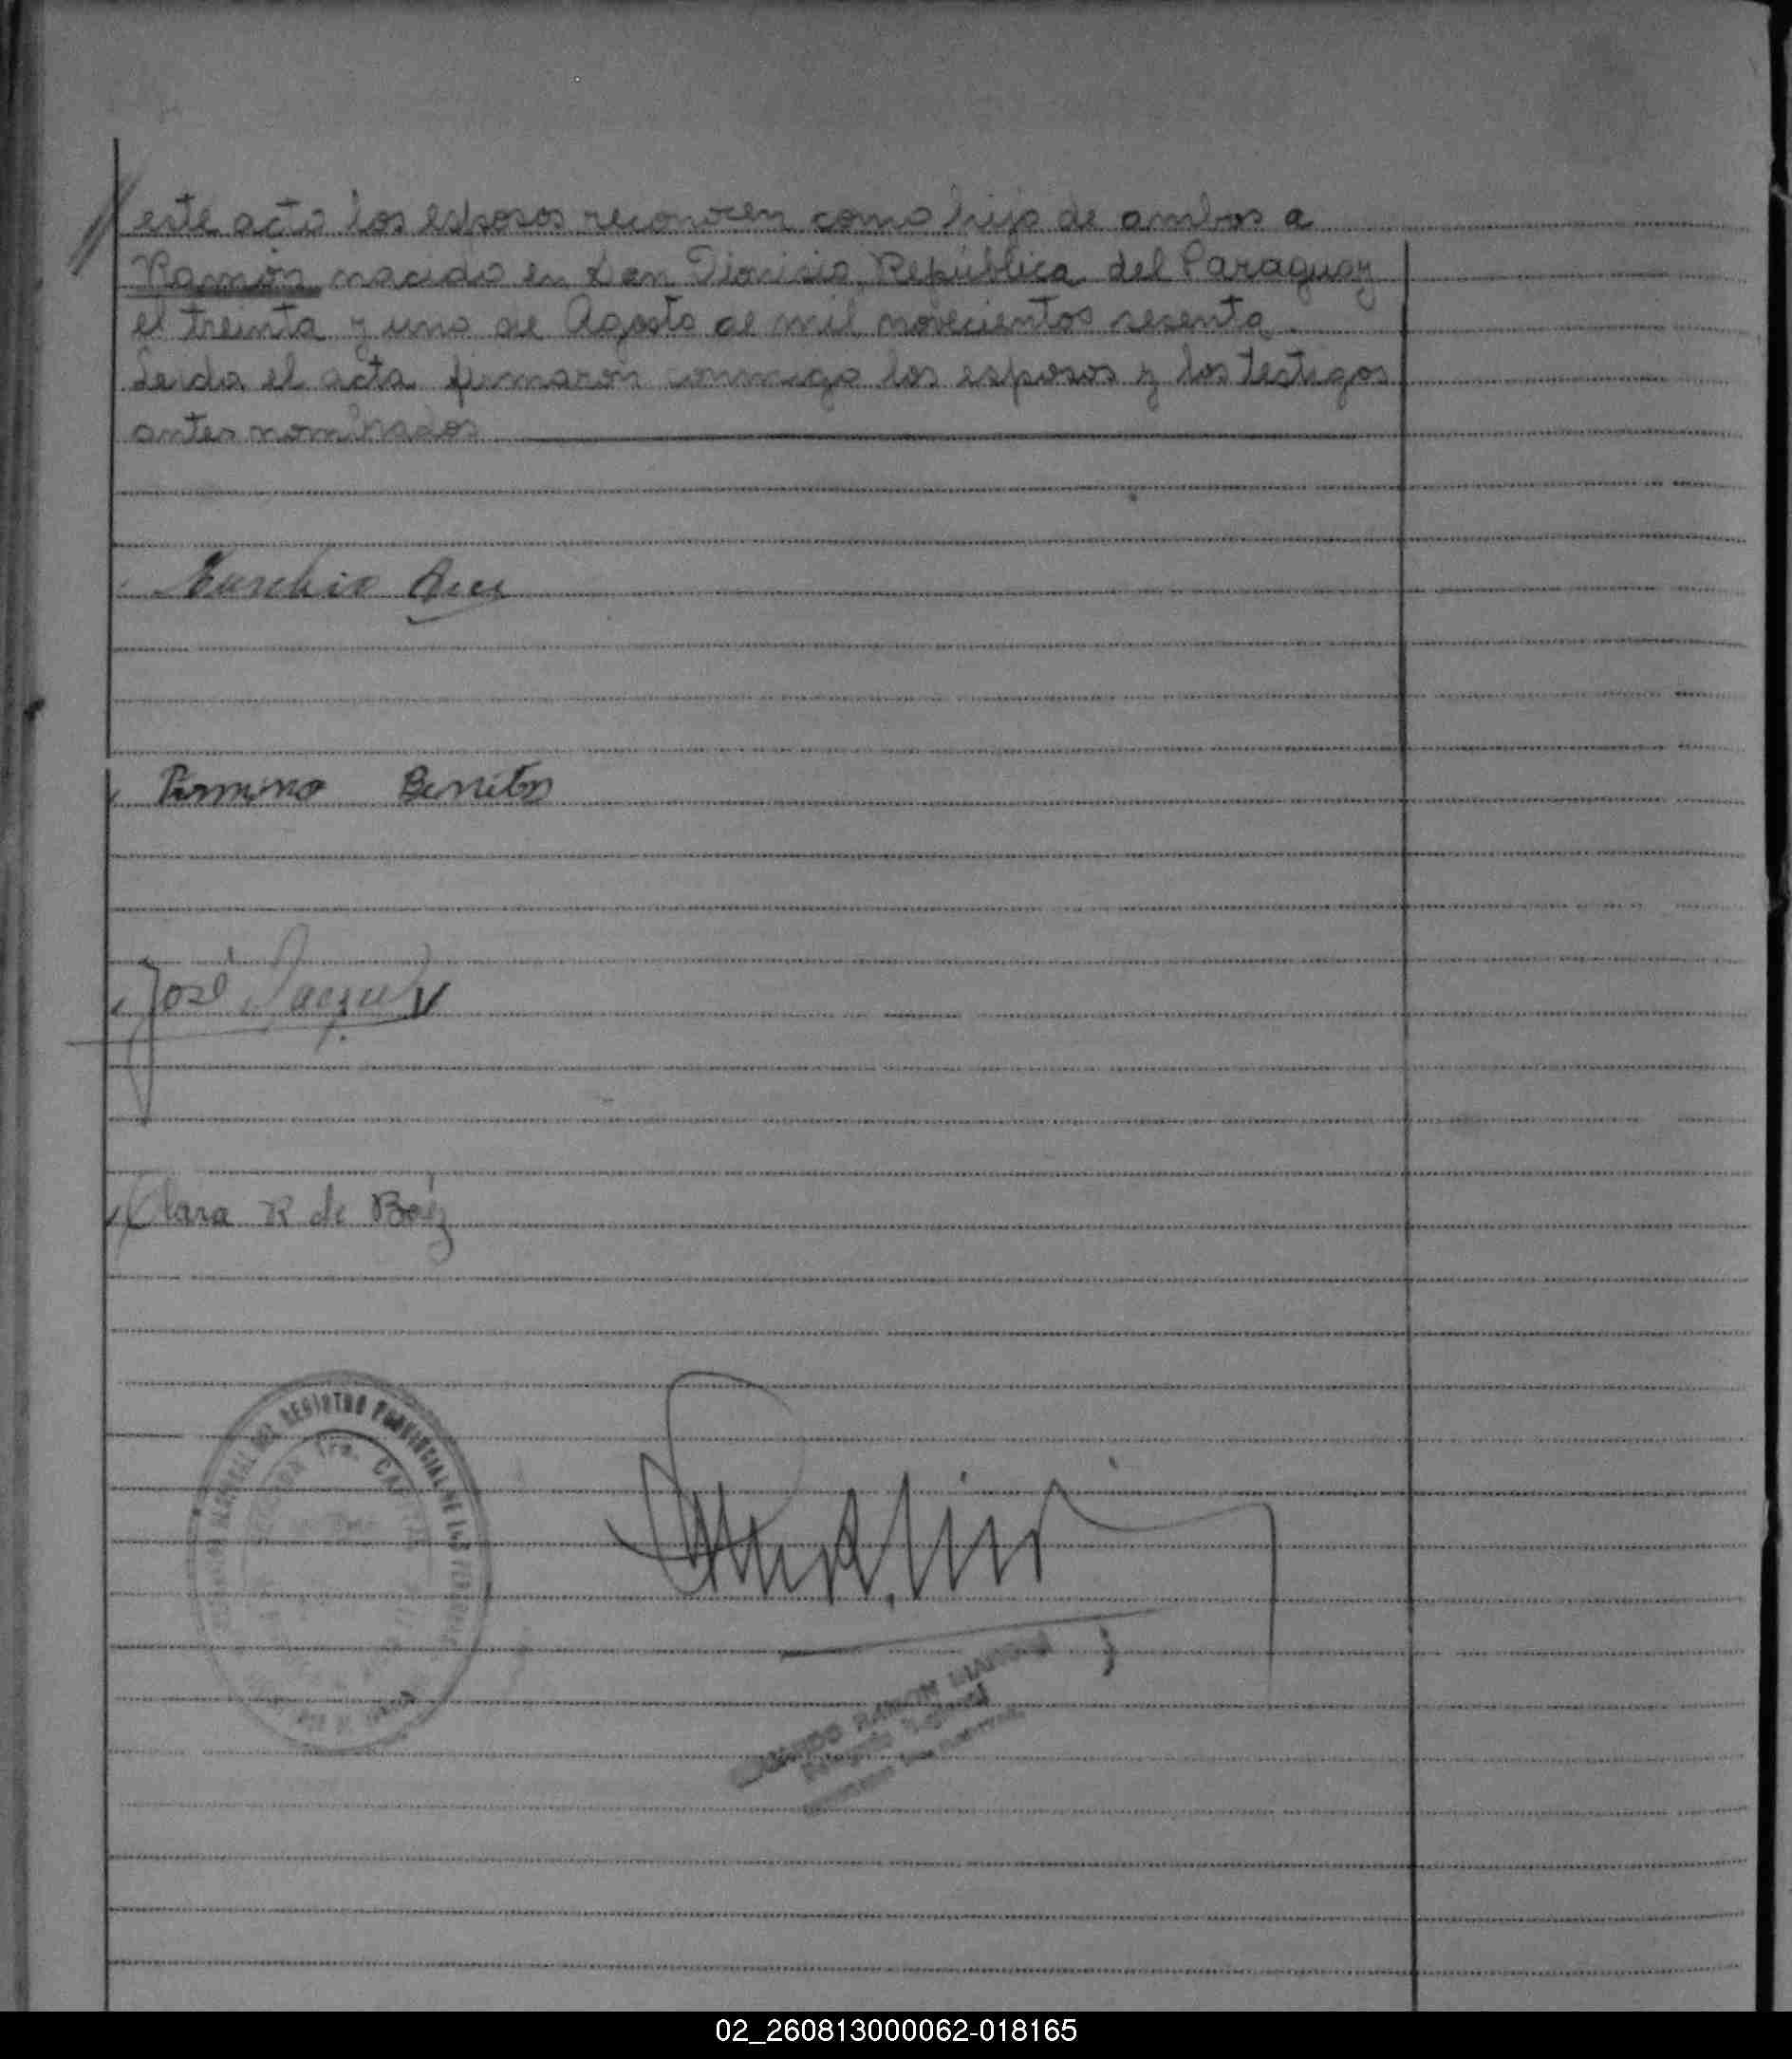 este acto los esposos reconocen como hijo de ambos a
Ramón nacido en San Dionisio República del Paraguay
el treinta y uno de Agosto de mil novecientos sesenta.
Leida el acta firmaron conmigo los esposos y los testigos
antes nombrados
Eusebio
Benitez
José
Clara R de Baéz
REGISTRO PROVINCIAL DE LAS PERSONAS
RAMON
02_260813000062-018165